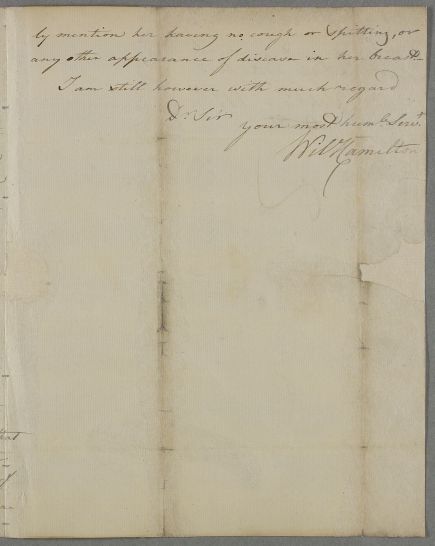 by mention her having no cough or Spitting, or
any other appearance of disease in her breast—
I am still however with much regard
Dr. Sir
your most humle Servt.
Will Hamilton
that
of